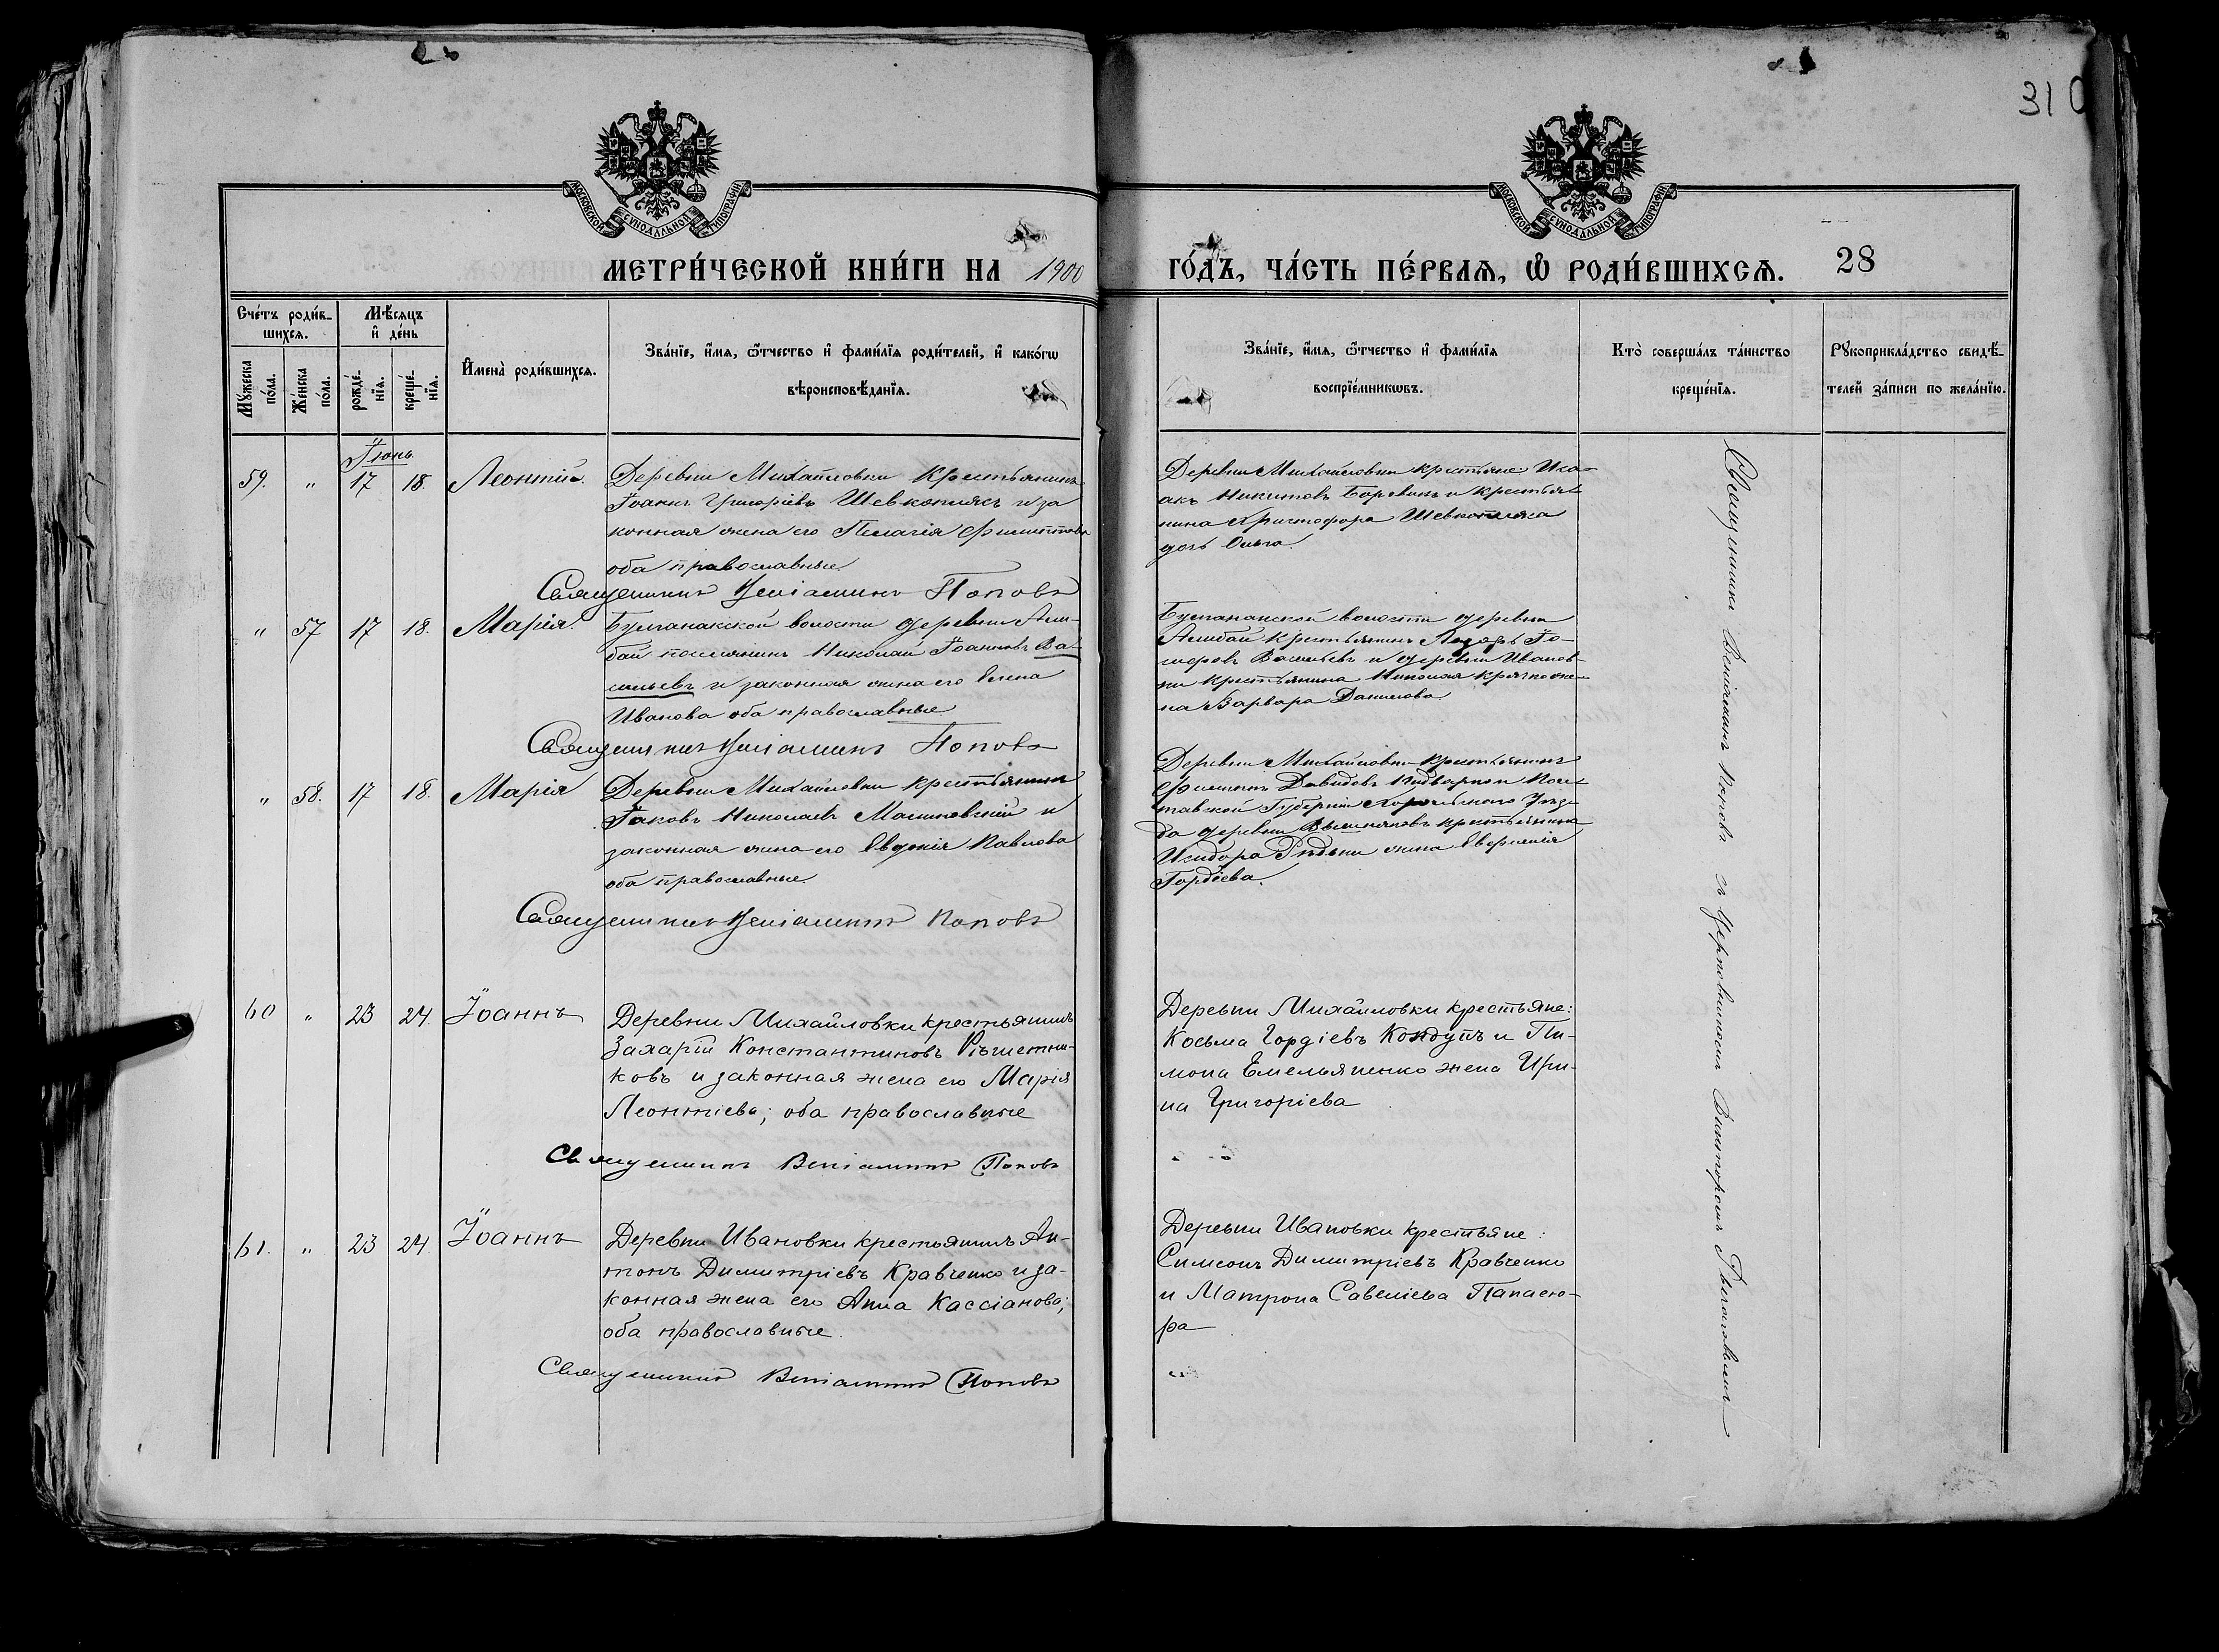 310
МОСКОВСКОЙ СѴНОДАЛЬНОЙ ТИПОГРАФІИ
МОСКОВСКОЙ СѴНОДАЛЬНОЙ ТИПОГРАФІИ
МЕТРИ́ЧЕСКОЙ КНИ́ГИ НА 1900
ГО́ДЪ, ЧА́СТЬ ПЕ́РВАЯ, Ѽ РОДИ́ВШИХСЯ. 28
Сче́тъ роди́в-
шихся.
Мѣ́сяцъ
и҆ де́нь
Мꙋ́жеска
по́ла.
Же́нска
по́ла.
рожде́-
нїя.
креще́-
нїя.
И҆мена̀ роди́вшихся.
Зва́нїе, и҆́мя, ѻ҆́тчество и҆ фами́лїя роди́телей, и҆ како́гѡ
вѣроисповѣ́данїя.
Зва́нїе, и҆́мя, ѻ҆́тчество и҆ фами́лїя
воспрїе́мникѡвъ.
Кто̀ соверша́лъ та́инство
креще́нїя.
Рꙋкоприкла́дство свидѣ́-
телей за́писи по жела́нїю.
Іюнь
59. " 17 18. Леонтій.
Деревни Михайловки крестьянинъ
Іоаннъ Григоріевъ Шевкоплясъ и за
конная жена его Пелагія Филиппова
оба православные.
Священникъ Веніаминъ Поповъ
Деревни Михайловки крестьяне Иса-
акъ Никитовъ Боровикъ и крестья-
нина Христофора Шевкопляса
дочь Ольга.
" 57 17 18. Марія.
Булганакской волости деревни Али-
бай поселянинъ Николай Іоанновъ Ва-
сильевъ и законная жена его Елена
Иванова оба православные.
Священникъ Веніаминъ Поповъ
Булганакской волости деревни
Алибай крестьянинъ
Васильевъ и деревни Иванов-
ки крестьянина Николая же-
на Варвара Данилова
" 58. 17 18. Марія
Деревни Михайловки крестьянинъ
Іаковъ Николаевъ Малиновскій и
законная жена его Евдокія Павлова
оба православные.
Священникъ Веніаминъ Поповъ
Деревни Михайловки крестьянинъ
Филиппъ Давидовъ и Пол-
тавской Губерніи Хорольскаго Уѣз-
да деревни крестьянина
Исидора Рѣдьки жена
Гордѣева.
60 " 23 24. Іоаннъ
Деревни Михайловки крестьянинъ
Захарій Константиновъ Рѣшетни-
ковъ и законная жена его Марія
Леонтіева; оба православные
Священникъ Веніаминъ Поповъ
Деревни Михайловки крестьяне:
Косьма Гордіевъ и Ти-
мона Емельяненко жена Ири-
на Григоріева
61. " 23 24 Іоаннъ
Деревни Ивановки крестьянинъ Ан-
тонъ Димитріевъ Кравченко и за-
конная жена его Анна Кассіанова;
оба православные.
Священникъ Веніаминъ Поповъ
Деревни Ивановки крестьяне:
Симеонъ Димитріевъ Кравченко
и Матрона Савеліева Панасю-
ра
Священникъ Веніаминъ Поповъ съ церковникомъ Викторомъ